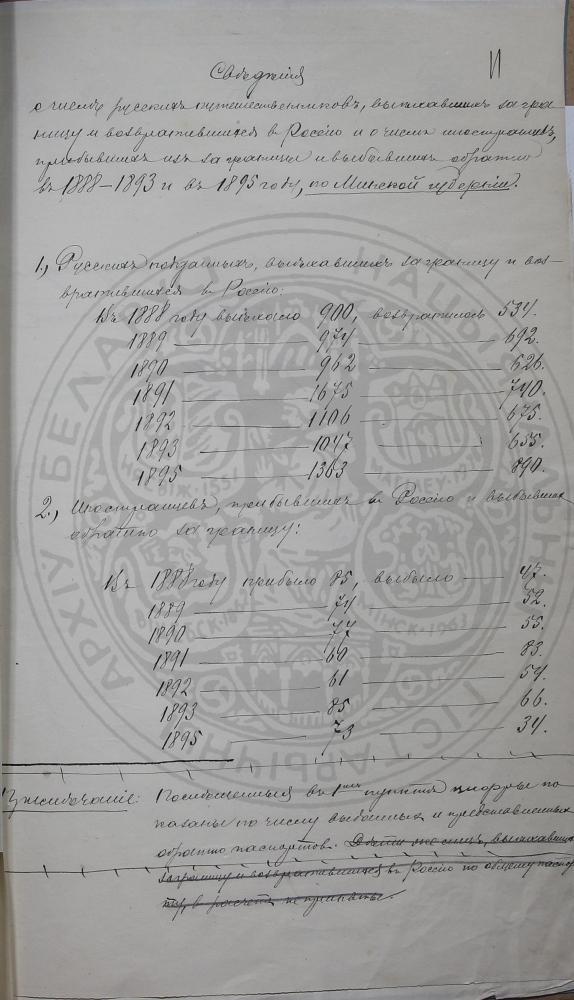 Сведенія
о числе русскихъ путешественниковъ, выезжавшихъ за гра-
ницу и возвратившихся въ Россію и о числе иностранцевъ,
прибывшихъ изъ за границы и выбывшихъ обратно
въ 1888-1893 и въ 1895 году, по Минской губерніи.
1., Русскихъ подданныхъ, выезжавшихъ за границу и воз-
вратившихся въ Россію:
Въ 1888 году выехало 900, возвратилось 534.
1889 — 974 — 692.
1890 — 962 — 626.
1891 — 1675 — 740.
1892 — 1106 — 675.
1893 — 1047 — 655.
1895 — 1363 — 890.
2., Иностранцевъ, прибывшихъ въ Россію и выбывшихъ
обратно за границу:
Въ 1888 году прибыло 85, выбыло — 47.
1889 — 74 — 52.
1890 — 77 — 55.
1891 — 60 — 83.
1892 — 61 — 54.
1893 — 85 — 66.
1895 — 73 — 34.
Примечаніе: въ 1 пункте цифры по-
казаны по числу выданныхъ и представленныхъ
обратно паспортовъ. Дети же лицъ, выезжавшихъ
заграницу и возвратившихся въ Россію по общему паспор-
ту, въ расчетъ не приняты.